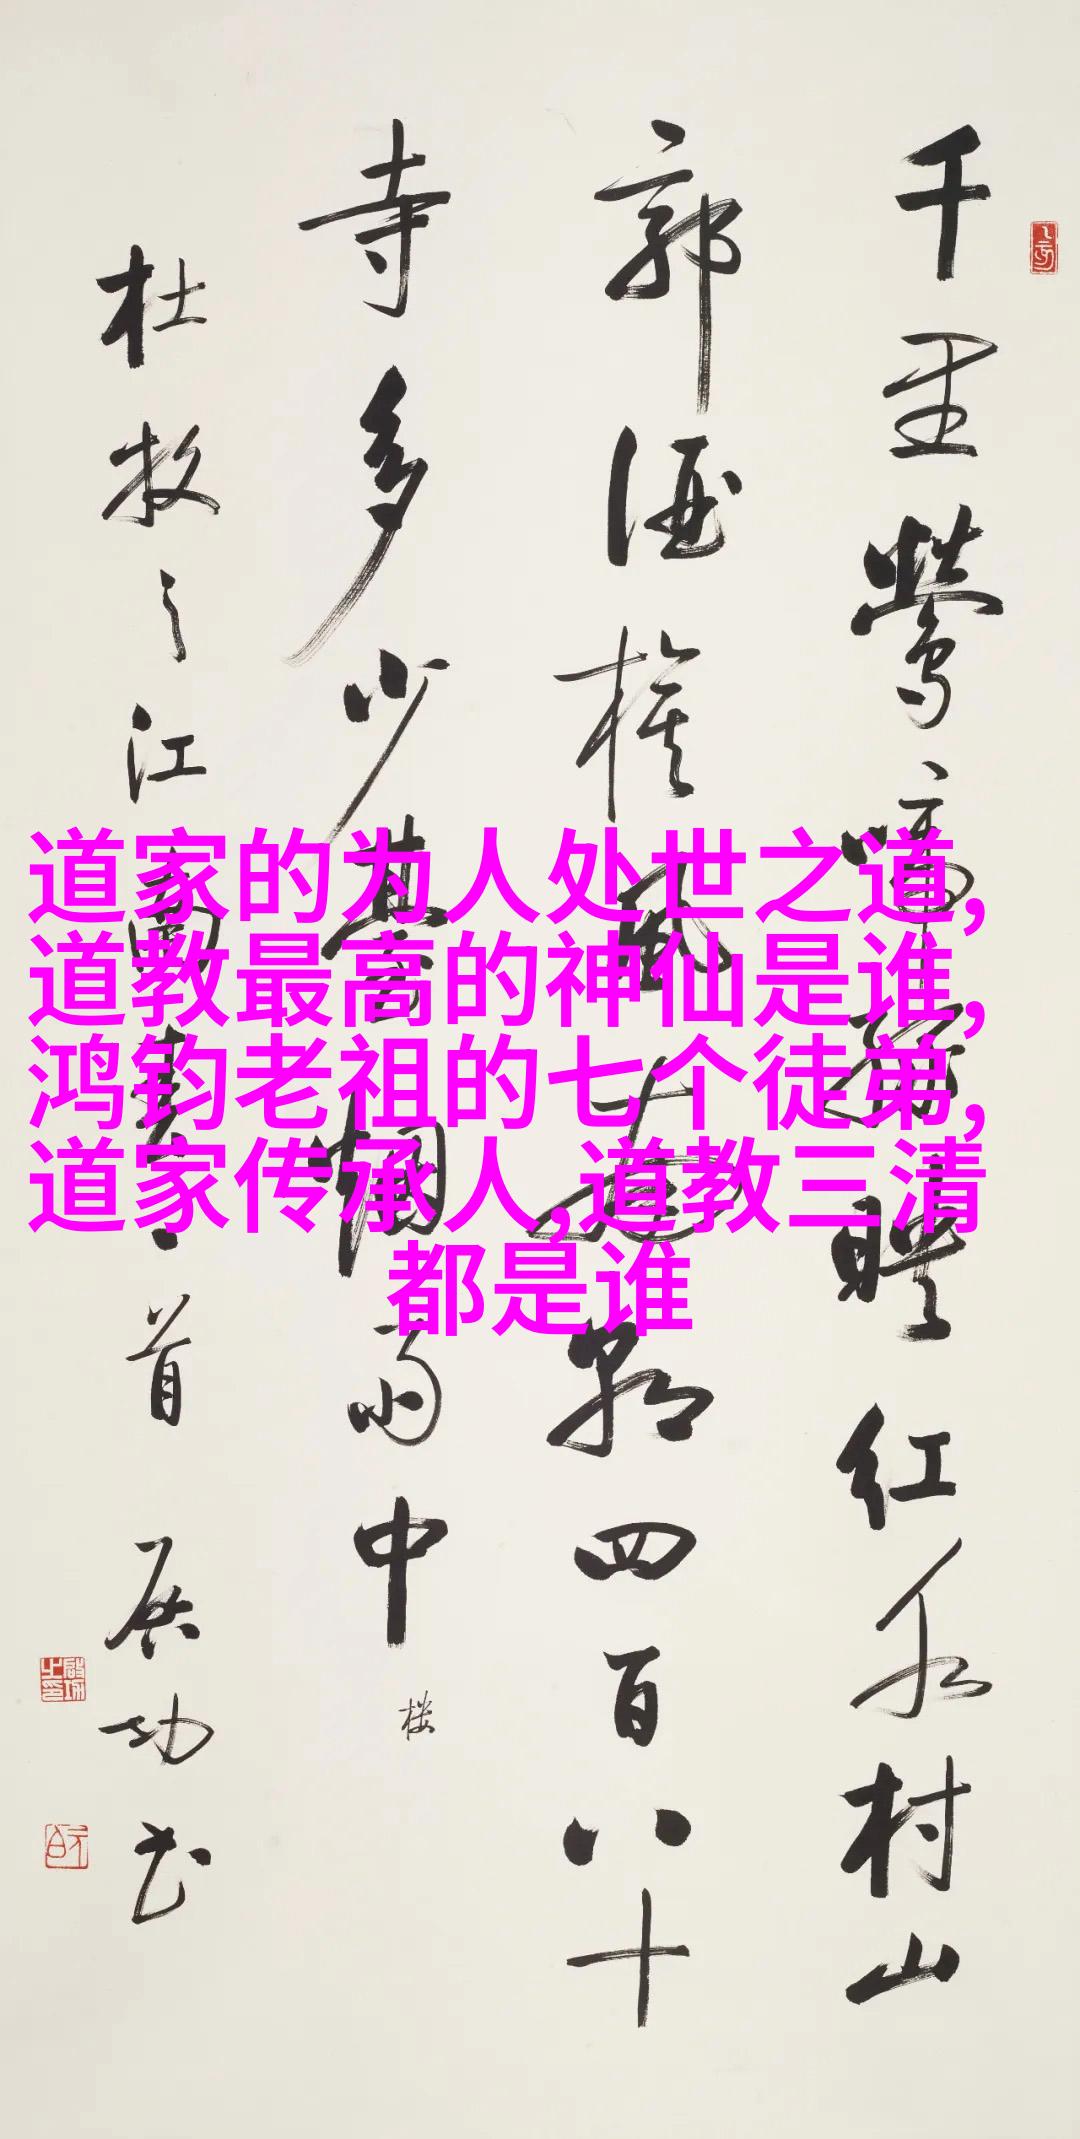 千里鶯啼綠暎红水村山
郭酒旗風南朝四百八十
寺多少臺烟雨中
楼
杜牧之江南春一首 启功书
啟功之印
元白
道家的为人处世之道,
道教最高的神仙是谁,
鸿钧老祖的七个徒弟,
道家传承人,道教三清
都是谁